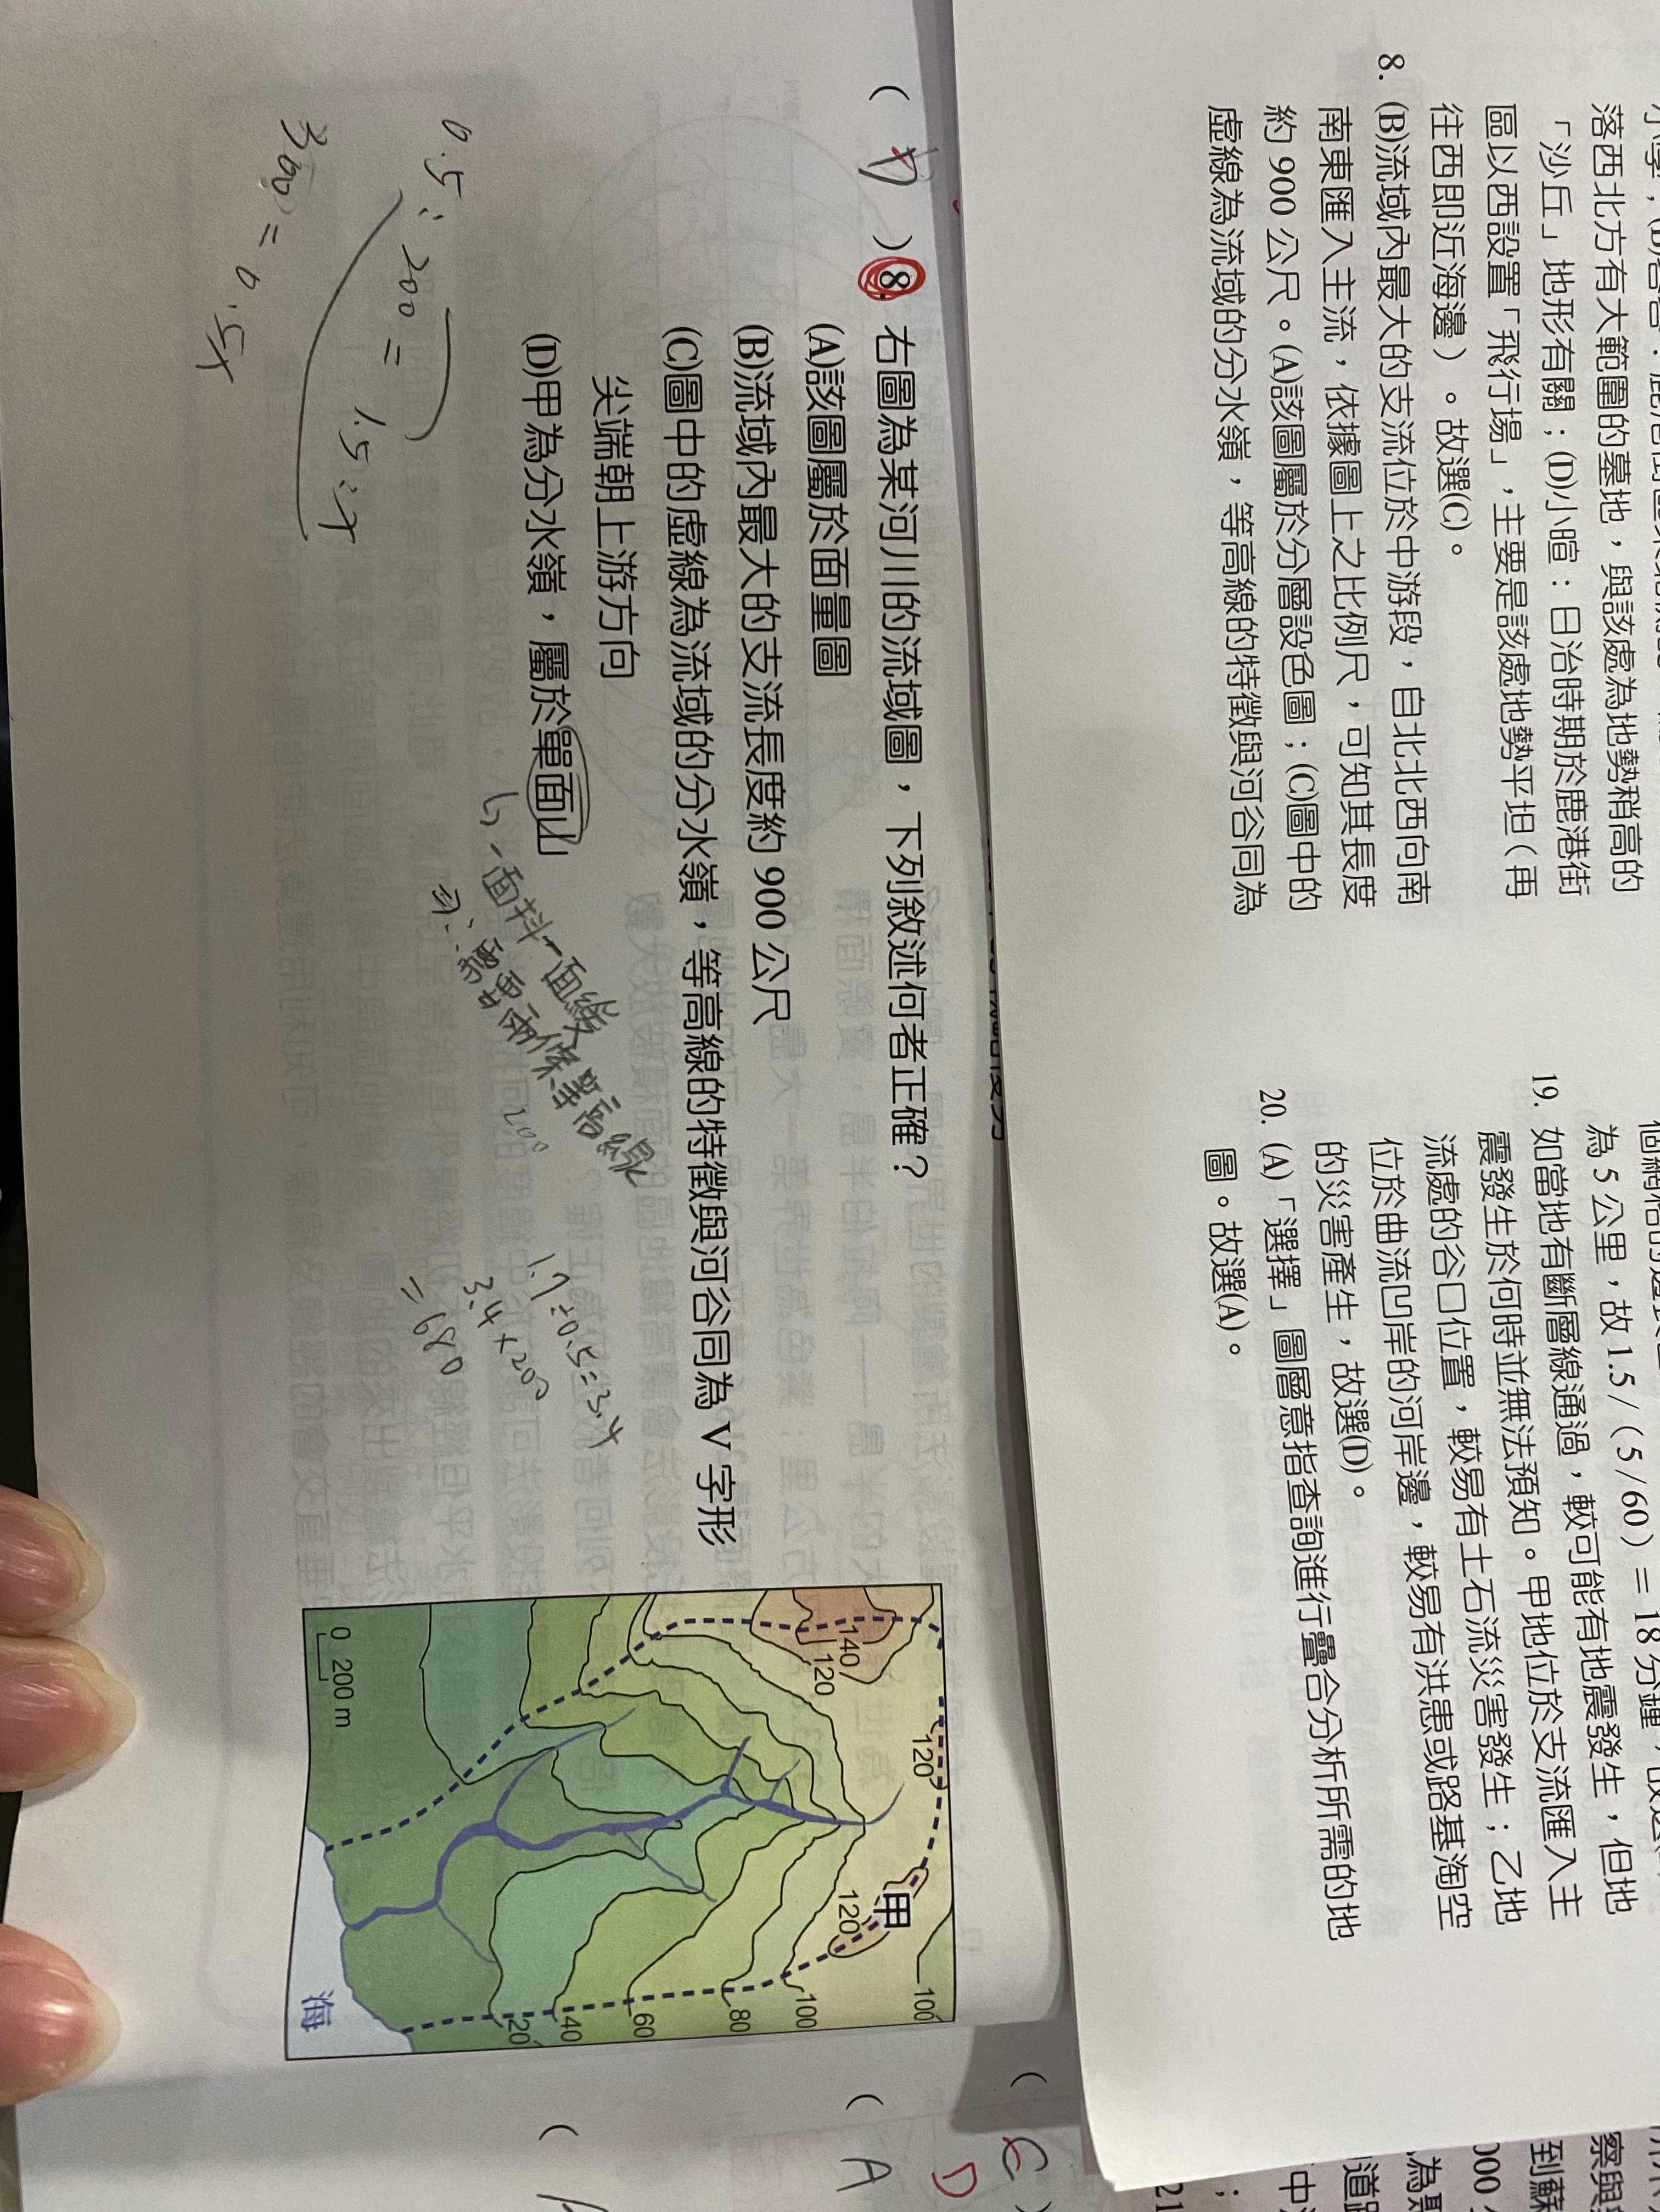 落西北方有大範圍的墓地，與該處為地勢稍高的
「沙丘」地形有關；(D)小暄：日治時期於鹿港街
區以西設置「飛行場」，主要是該處地勢平坦（再
往西即近海邊）。故選(C)。
8. (B)流域內最大的支流位於中游段，自北北西向南
南東匯入主流，依據圖上之比例尺，可知其長度
約 900 公尺。(A)該圖屬於分層設色圖；(C)圖中的
虛線為流域的分水嶺，等高線的特徵與河谷同為
為 5 公里，故 1.5 /（5 / 60）＝ 18 分鐘，故選
19. 如當地有斷層線通過，較可能有地震發生，但地
震發生於何時並無法預知。甲地位於支流匯入主
流處的谷口位置，較易有土石流災害發生；乙地
位於曲流凹岸的河岸邊，較易有洪患或路基淘空
的災害產生，故選(D)。
20. (A)「選擇」圖層意指查詢進行疊合分析所需的地
圖。故選(A)。
( D ) 8. 右圖為某河川的流域圖，下列敘述何者正確？
(A)該圖屬於面量圖
(B)流域內最大的支流長度約 900 公尺
(C)圖中的虛線為流域的分水嶺，等高線的特徵與河谷同為 V 字形
尖端朝上游方向
(D)甲為分水嶺，屬於單面山
一面抖一面緩
需要兩條等高線
200
1.7÷0.5=3.4
3.4×200
=680
0.5:200=1.5:x
300=0.5x
140
120
120
甲
120
100
100
80
60
40
20
0 200 m
海
( C )
D
( A
(